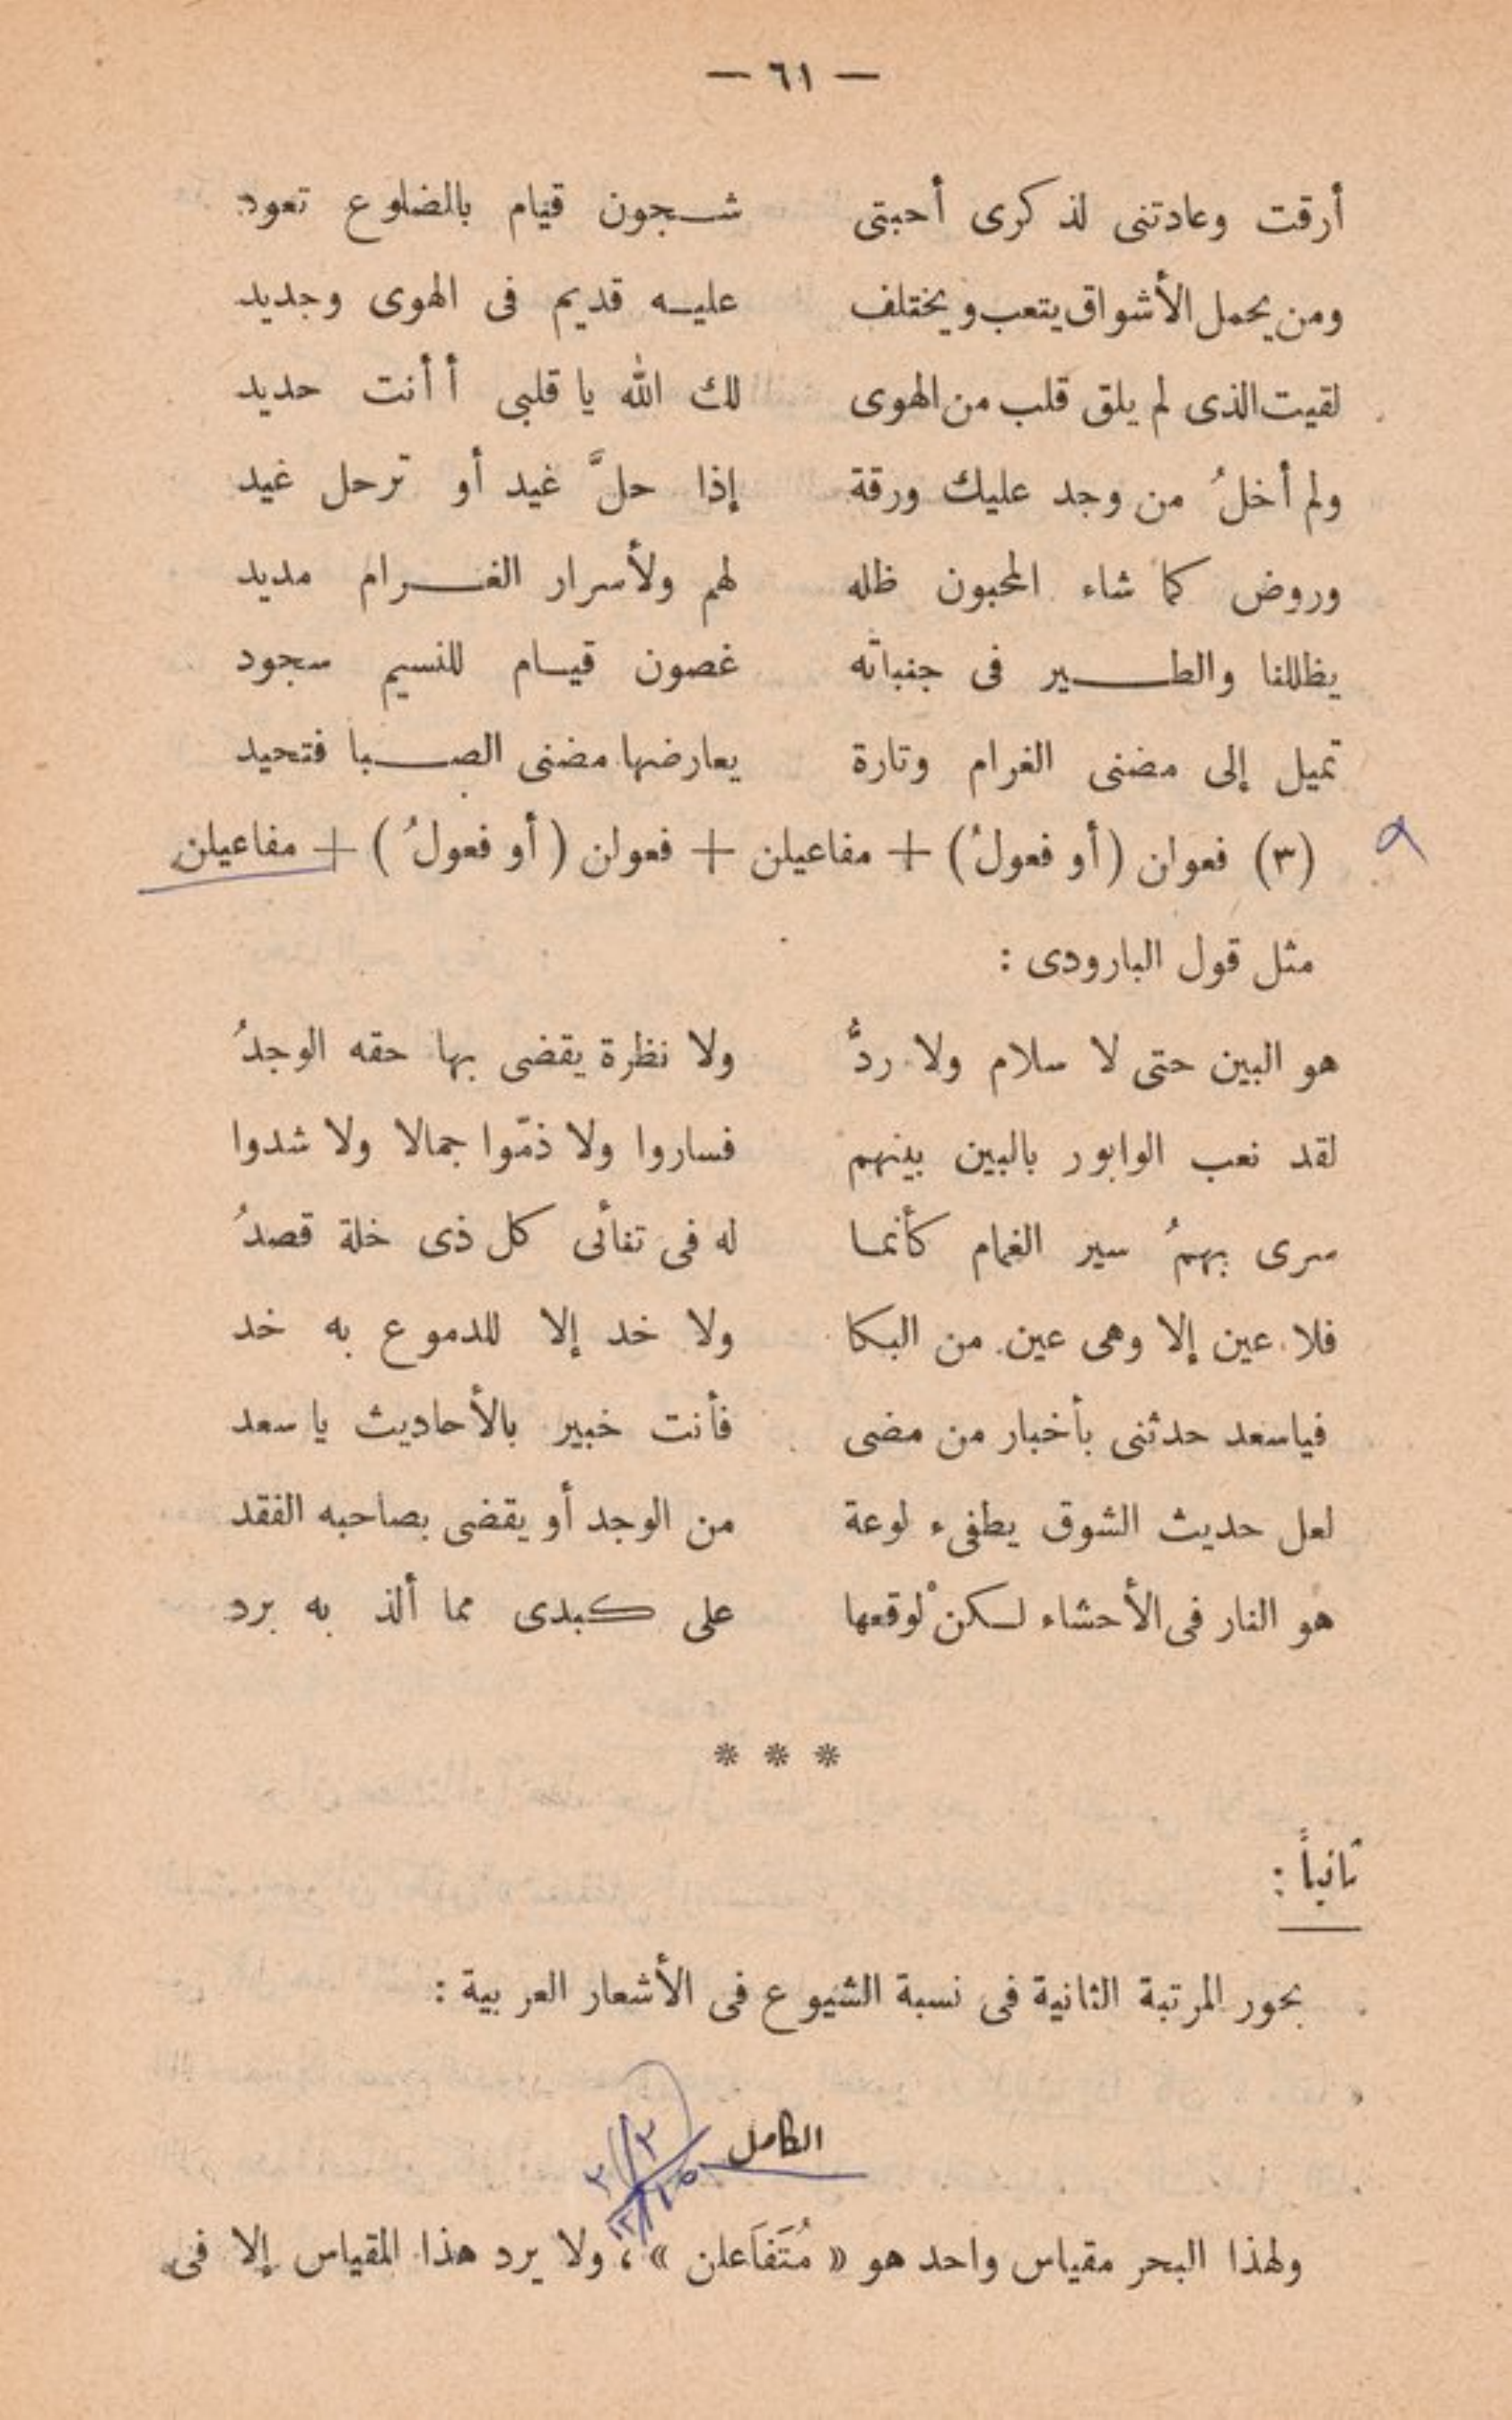 — ٦١ —
أرقت وعادتنى لذكرى أحبتى شجون قيام بالضلوع تعود
ومن يحمل الأشواق يتعب ويختلف عليه قديم فى الهوى وجديد
لقيت الذى لم يلق قلب من الهوى لك الله يا قلبى أأنت حديد
ولم أخلُ من وجد عليك ورقة إذا حلَّ غيد أو ترحل غيد
وروض كما شاء المحبون ظله لهم ولأسرار الغرام مديد
يظللنا والطير فى جنباته غصون قيام للنسيم سجود
تميل إلى مضنى الغرام وتارة يعارضها مضنى الصبا فتحيد
(٣) فعولن (أو فعولُ) + مفاعيلن + فعولن (أو فعولُ) + مفاعيلن
مثل قول البارودى :
هو البين حتى لا سلام ولا ردُّ ولا نظرة يقضى بها حقه الوجدُ
لقد نعب الوابور بالبين بينهم فساروا ولا ذمّوا جمالا ولا شدوا
سرى بهمُ سير الغمام كأنما له فى تنائى كل ذى خلة قصدُ
فلا عين إلا وهى عين من البكا ولا خد إلا للدموع به خد
فياسعد حدثنى بأخبار من مضى فأنت خبير بالأحاديث يا سعد
لعل حديث الشوق يطفىء لوعة من الوجد أو يقضى بصاحبه الفقد
هو النار فى الأحشاء لكنْ لوقعها على كبدى مما ألذ به برد
* * *
ثانياً :
بحور المرتبة الثانية فى نسبة الشيوع فى الأشعار العربية :
الكامل
ولهذا البحر مقياس واحد هو « مُتَفَاَعلن » ، ولا يرد هذا المقياس إلا فى